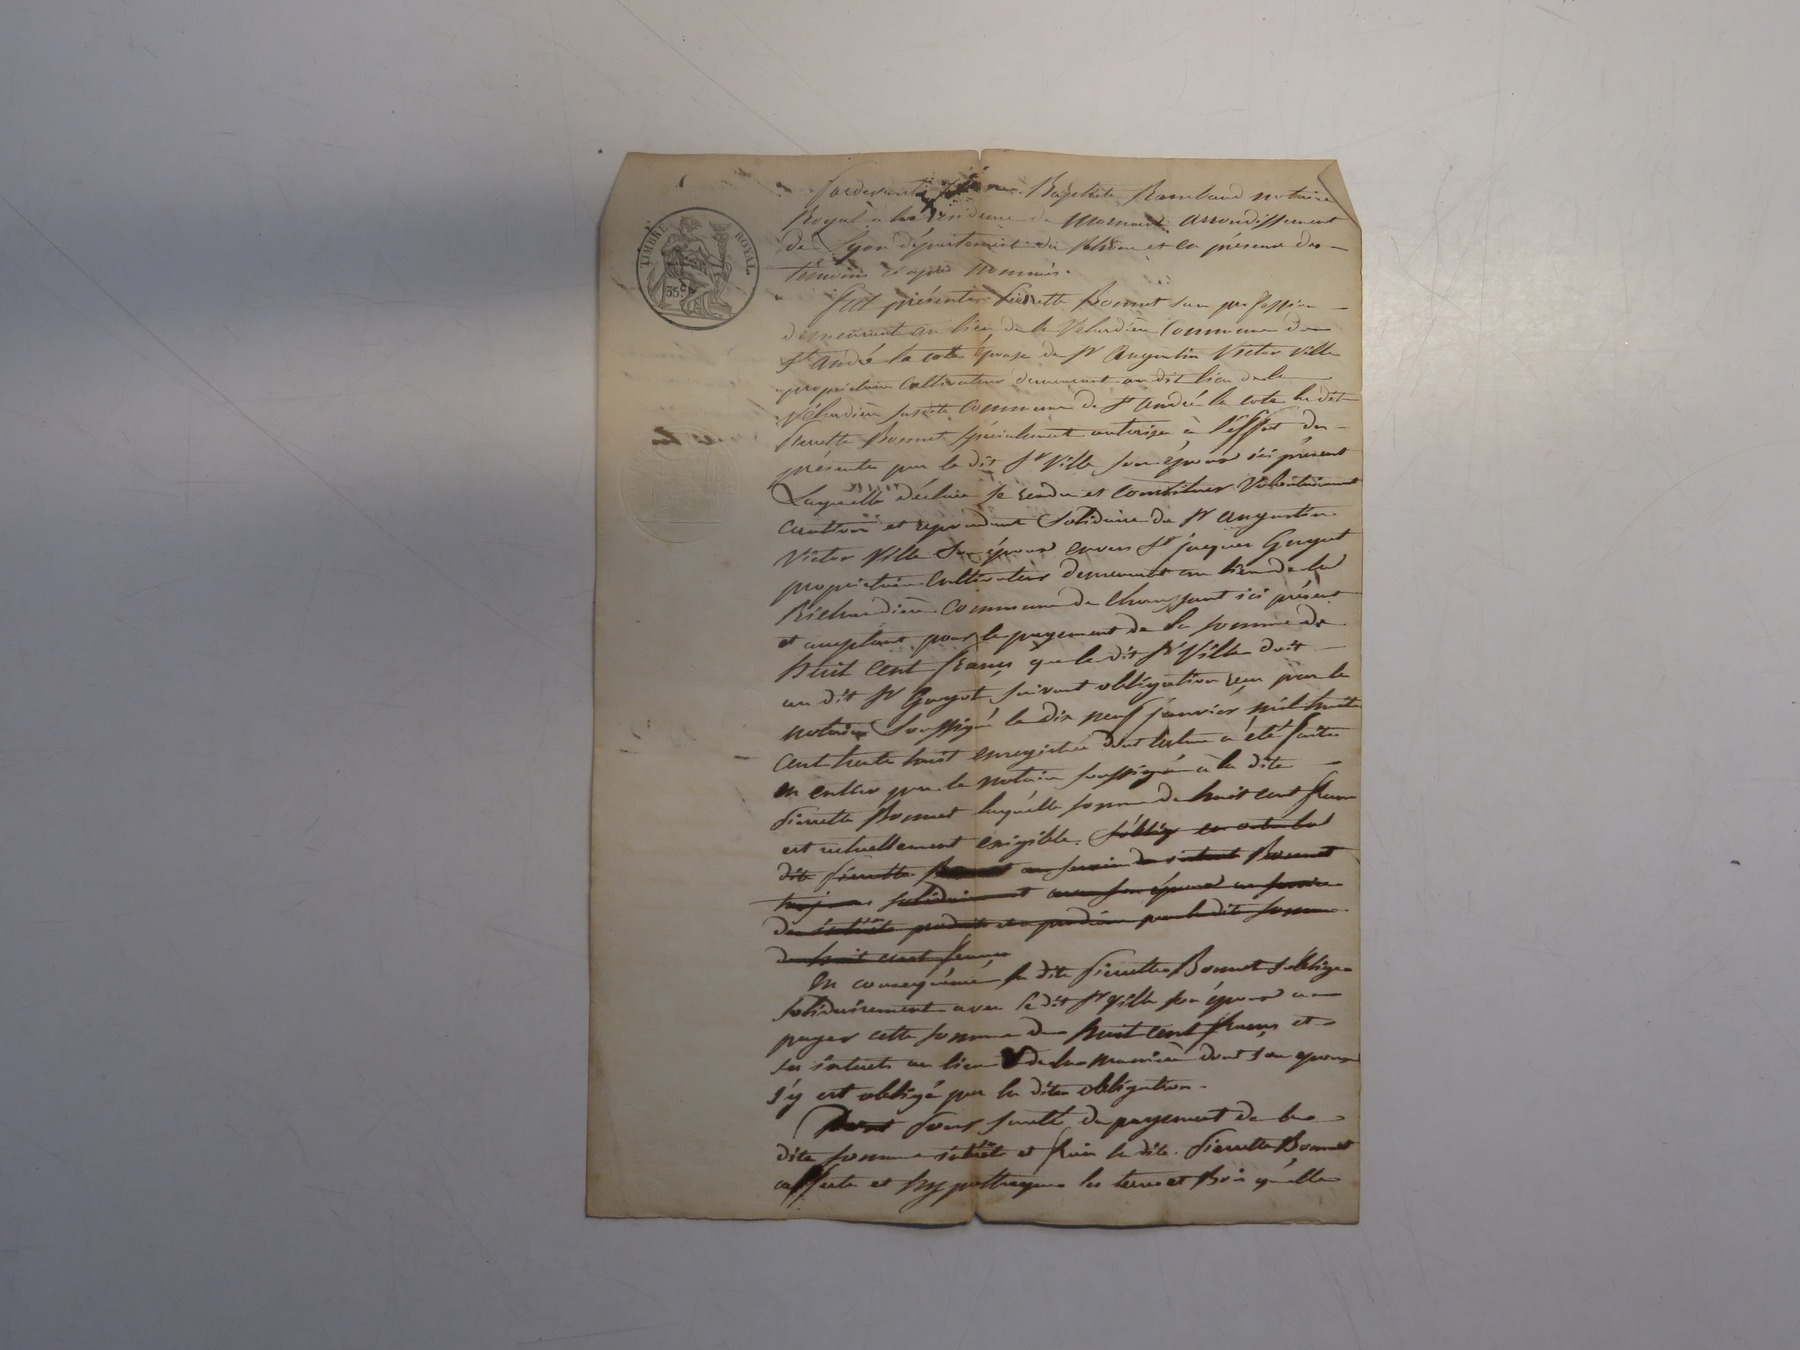 TIMBRE ROYAL
35 c
Pardevant Jean Baptiste Rambaud notaire
Royal à la résidence de Mornant arrondissement
de Lyon département du Rhône et en présence des
témoins ci après nommés.
Fut présente Pierrette Bonnet sans profession
demeurant au lieu de la Vélardière Commune de
St andré la cote épouse de Sr augustin Victor Ville
propriétaire Cultivateur demeurant au dit lieu de la
Vélardière susdite Commune de St andré la cote la dite
Pierrette Bonnet spécialement autorisée à l'effet des
présentes par le dit Sr Ville son époux ici présent
Laquelle déclare se rendre et constituer Volontairement
caution et répondante Solidaire de Sr augustin
Victor Ville Son époux envers Sr jacques Guyot
propriétaire Cultivateur demeurant au lieu de la
Richardière Commune de Chaussant ici présent
et acceptant pour le payement de la somme de
huit cent francs que le dit Sr Ville doit
au dit Sr Guyot suivant obligation reçu par le
notaire Soussigné le dix neuf janvier mil huit
cent trente huit enregistrée dont lecture a été faite
en entier par le notaire soussigné à la dite
Pierrette Bonnet laquelle somme de huit cent francs
est actuellement exigible. s'oblige en outre la
dite Pierrette au service des intérêts Bonnet
toujours solidairement avec son époux au service
des intérêts produits et à produire par la dite somme
de huit cent francs
En conséquence la dite Pierrette Bonnet s'oblige
solidairement avec le dit Sr Ville son époux a
payer cette somme de huit cent francs et
les intérets au lieu de la manière dont son époux
s'y est obligé par la dite obligation.
Pour sureté du payement de la
dite somme intérêts et frais la dite Pierrette Bonnet
affecte et hypothèque les terre et Bois qu'elle